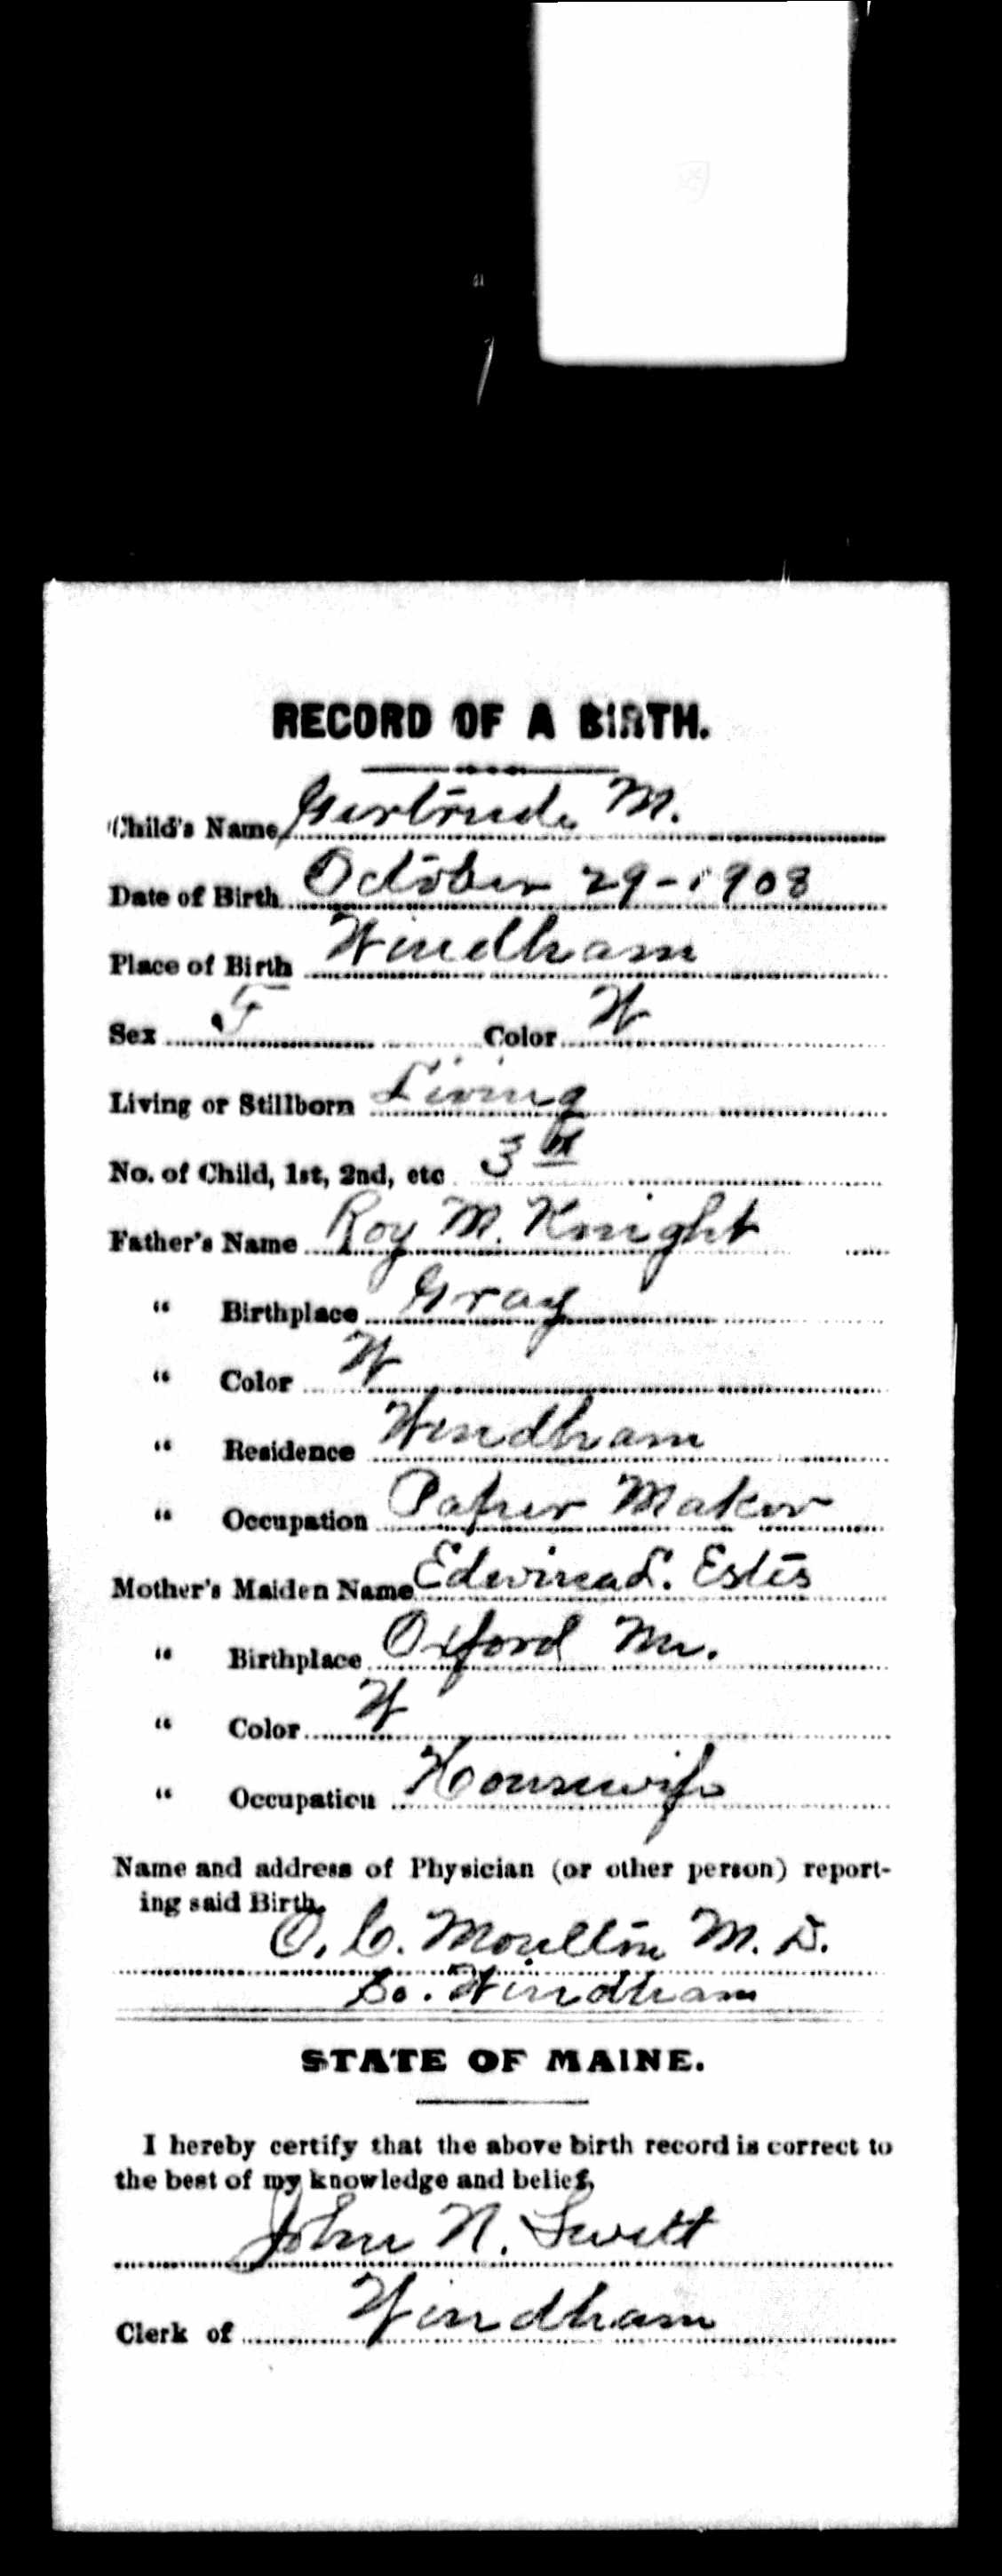 RECORD OF A BIRTH.
Child's Name Gertrude M.
Date of Birth October 29-1908
Place of Birth Windham
Sex F Color W
Living or Stillborn Living
No. of Child, 1st, 2nd, etc 3rd
Father's Name Roy M. Knight
" Birthplace Gray
" Color W
" Residence Windham
" Occupation Paper Maker
Mother's Maiden Name Edwina L. Estes
" Birthplace Oxford Me.
" Color W
" Occupation Housewife
Name and address of Physician (or other person) report-
ing said Birth.
O. C. Moulton M. D.
So. Windham
STATE OF MAINE.
I hereby certify that the above birth record is correct to
the best of my knowledge and belief,
John N. Swett
Clerk of Windham